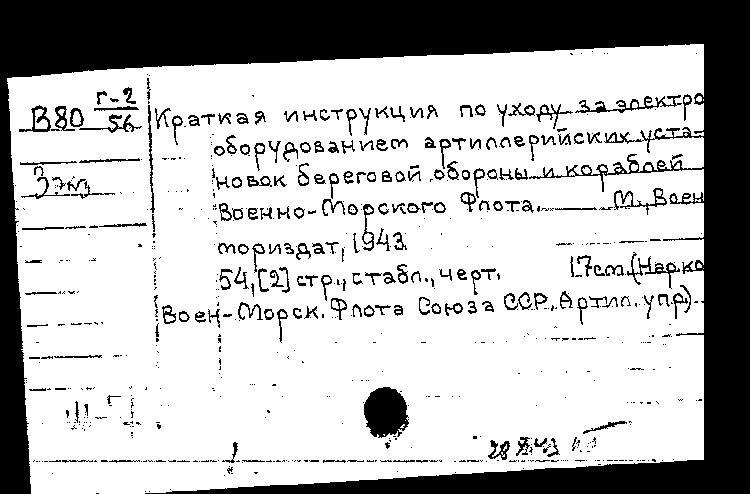 В80 г-2/56
3 экз
Краткая инструкция по уходу за электро
оборудованием артиллерийских уста-
новок береговой обороны и кораблей
Военно-Морского Флота. М., Воен
мориздат, 1943.
54, [2] стр., с табл., черт. 17 см. (Нар. ко
Воен-Морск. Флота Союза ССР. Артил. упр).